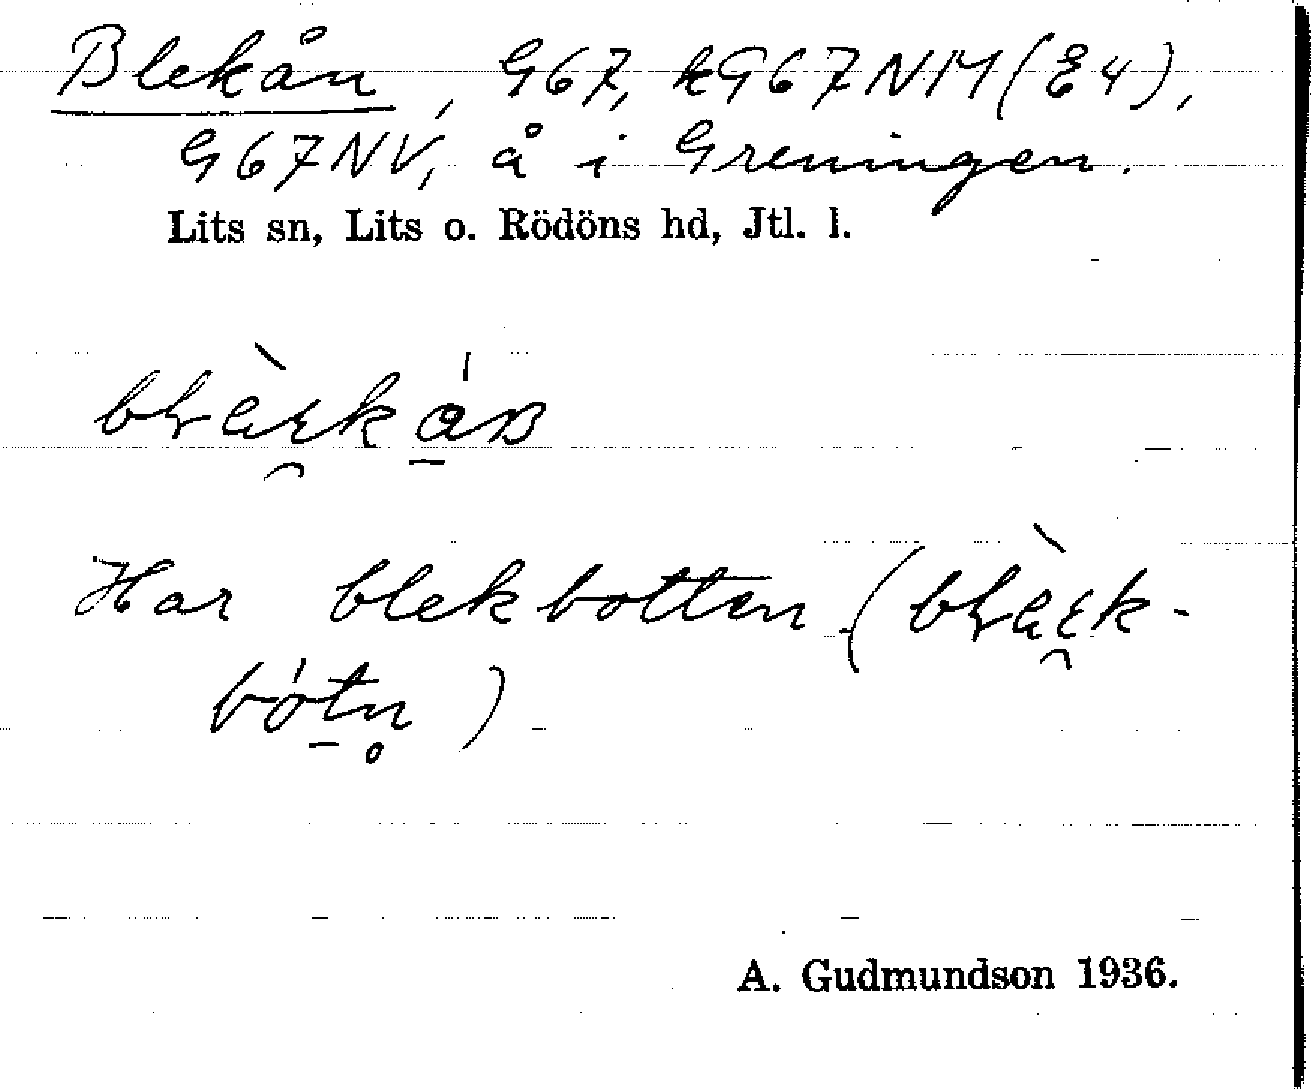 Blekån, G67, kG67NM(E4),
G67NV, å i Greningen.
Lits sn, Lits o. Rödöns hd, Jtl. l.
Har blekbotten (
)
A. Gudmundson 1936.